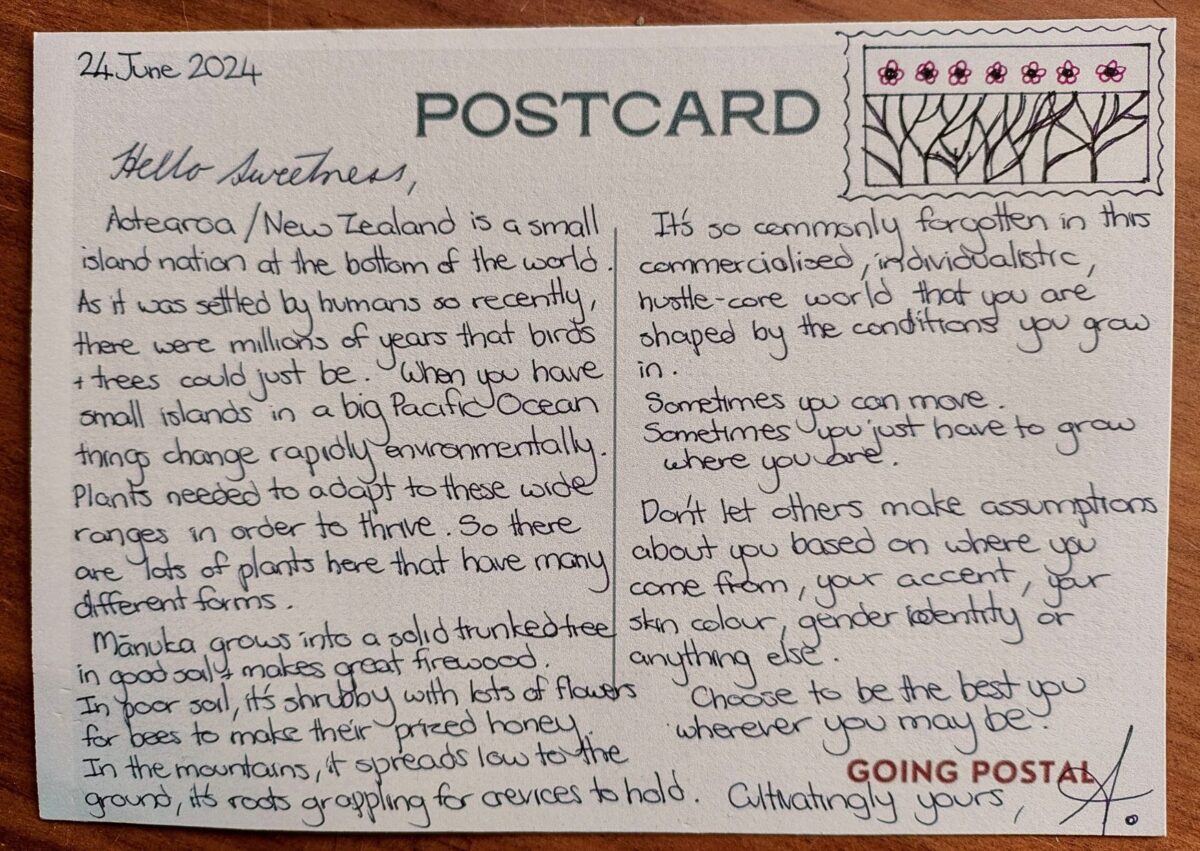 24 June 2024
POSTCARD
Hello Sweetness,
Aotearoa / New Zealand is a small
island nation at the bottom of the world.
As it was settled by humans so recently,
there were millions of years that birds
+ trees could just be. When you have
small islands in a big Pacific Ocean
things change rapidly environmentally.
Plants needed to adapt to these wide
ranges in order to thrive. So there
are lots of plants here that have many
different forms.
Mānuka grows into a solid trunked tree
in good soil + makes great firewood.
In poor soil, it's shrubby with lots of flowers
for bees to make their prized honey.
In the mountains, it spreads low to the
ground, it's roots grappling for crevices to hold.
It's so commonly forgotten in this
commercialised, individualistic,
hustle-core world that you are
shaped by the conditions you grow
in.
Sometimes you can move.
Sometimes you just have to grow
where you are.
Don't let others make assumptions
about you based on where you
come from, your accent, your
skin colour, gender identity or
anything else.
Choose to be the best you
wherever you may be.
GOING POSTAL
Cultivatingly yours,
A.